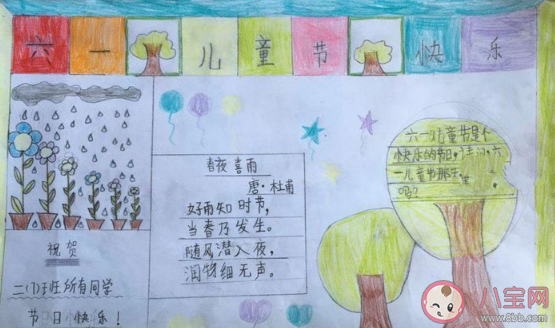 六一儿童节快乐
祝贺
二(7)班所有同学
节日快乐！
春夜喜雨
唐·杜甫
好雨知时节,
当春乃发生。
随风潜入夜,
润物细无声。
六一儿童节是个
快乐的节日,
一儿童节那
吗?
八宝网
www.8bb.com